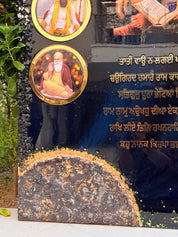 ਤਾਤੀ ਵਾਉ ਨ ਲਗਈ
ਚਉਗਿਰਦ ਹਮਾਰੈ ਰਾਮ ਕਾਰ
ਸਤਿਗੁਰੁ ਪੂਰਾ ਭੇਟਿਆ
ਰਾਮ ਨਾਮੁ ਅਉਖਧੁ ਦੀਆ ਏਕਾ
ਰਾਖਿ ਲੀਏ ਤਿਨਿ ਰਖਨਹਾਰਿ
ਕਹੁ ਨਾਨਕ ਕਿਰਪਾ ਭਈ